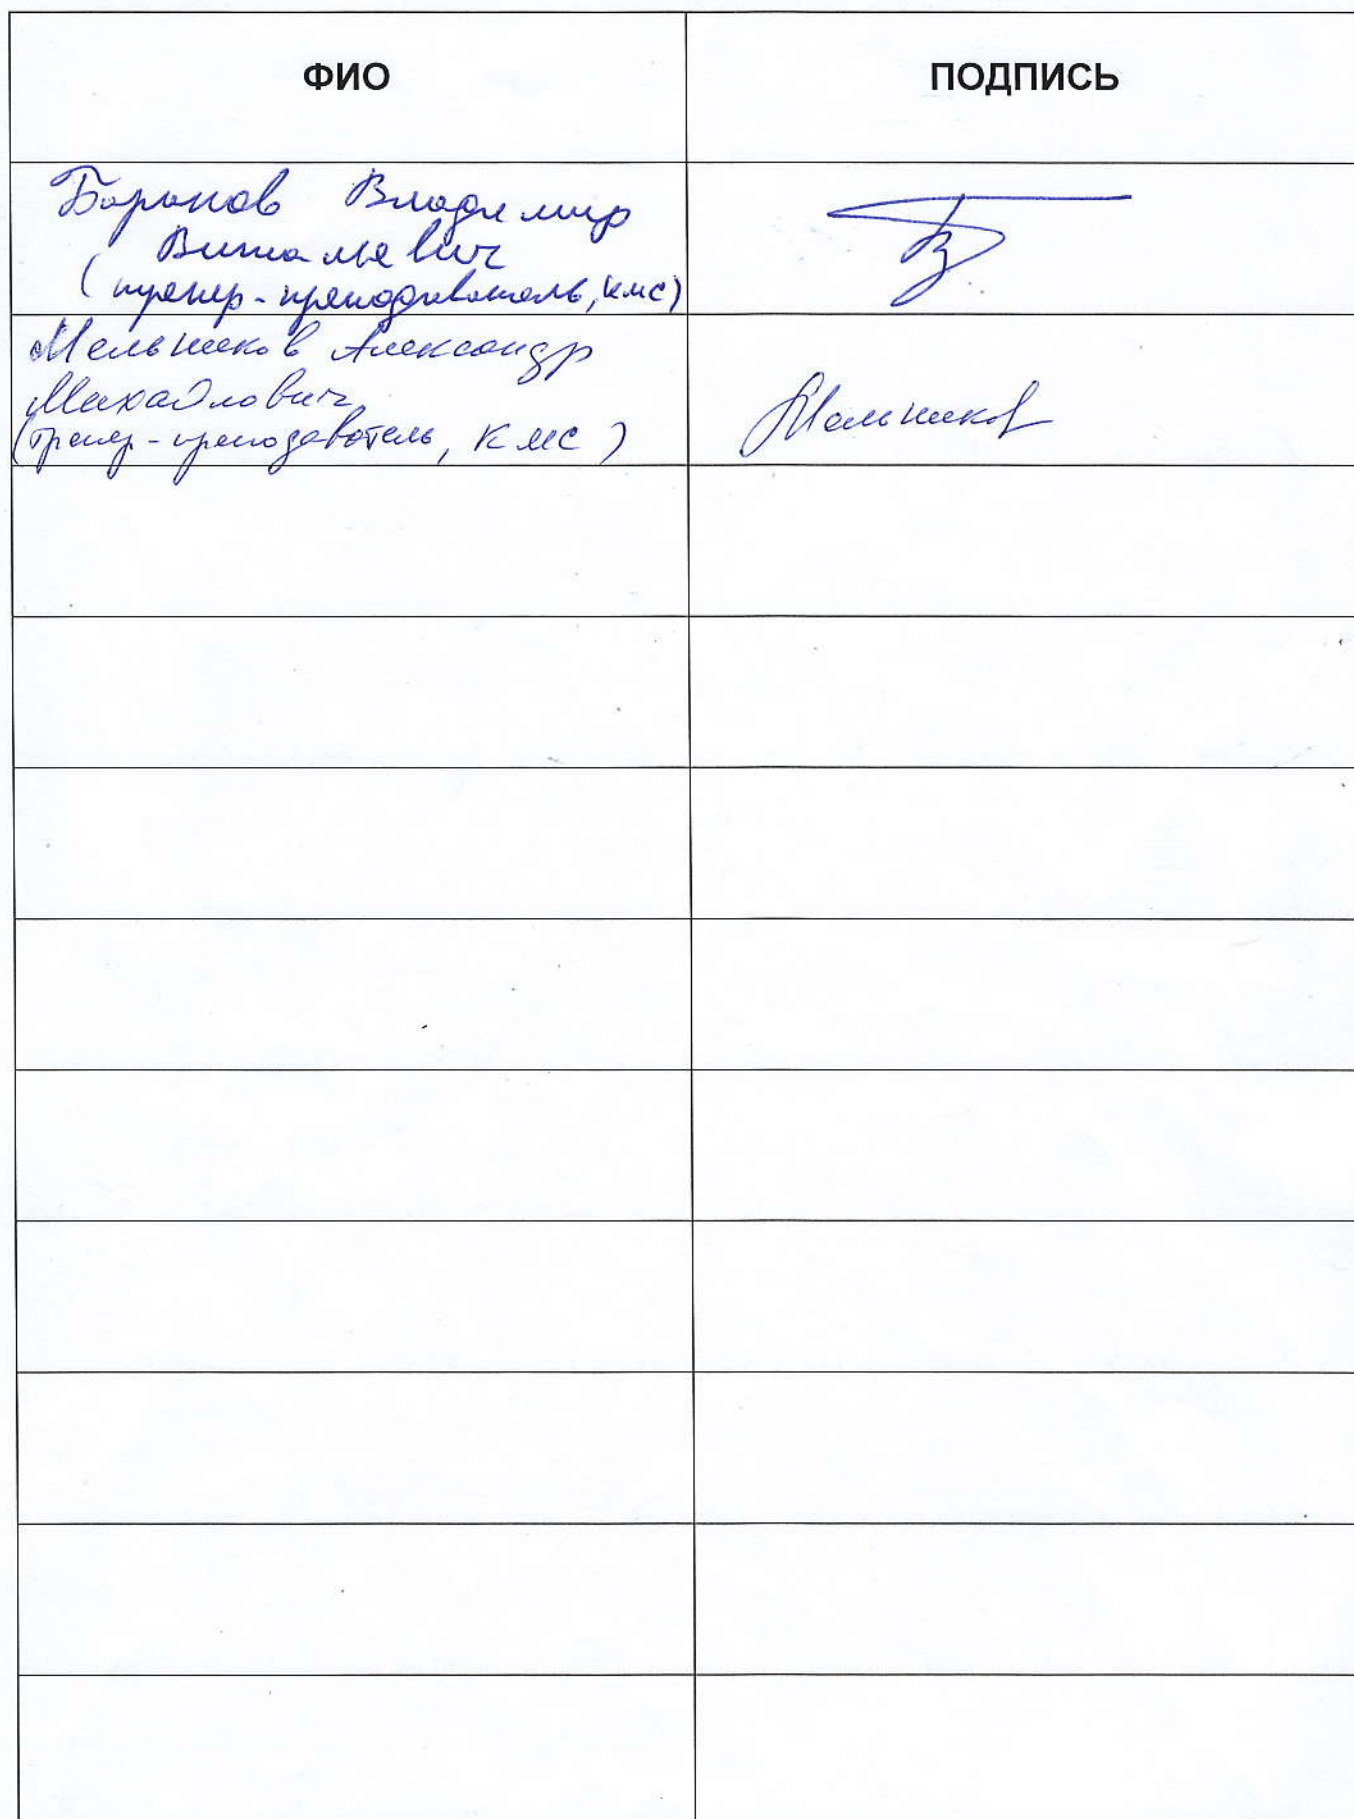 ФИО
ПОДПИСЬ
Баранов Владимир
Витальевич
(тренер-преподаватель, кмс)
Мельников Александр
Михайлович
(тренер-преподаватель, КМС)
Мельников